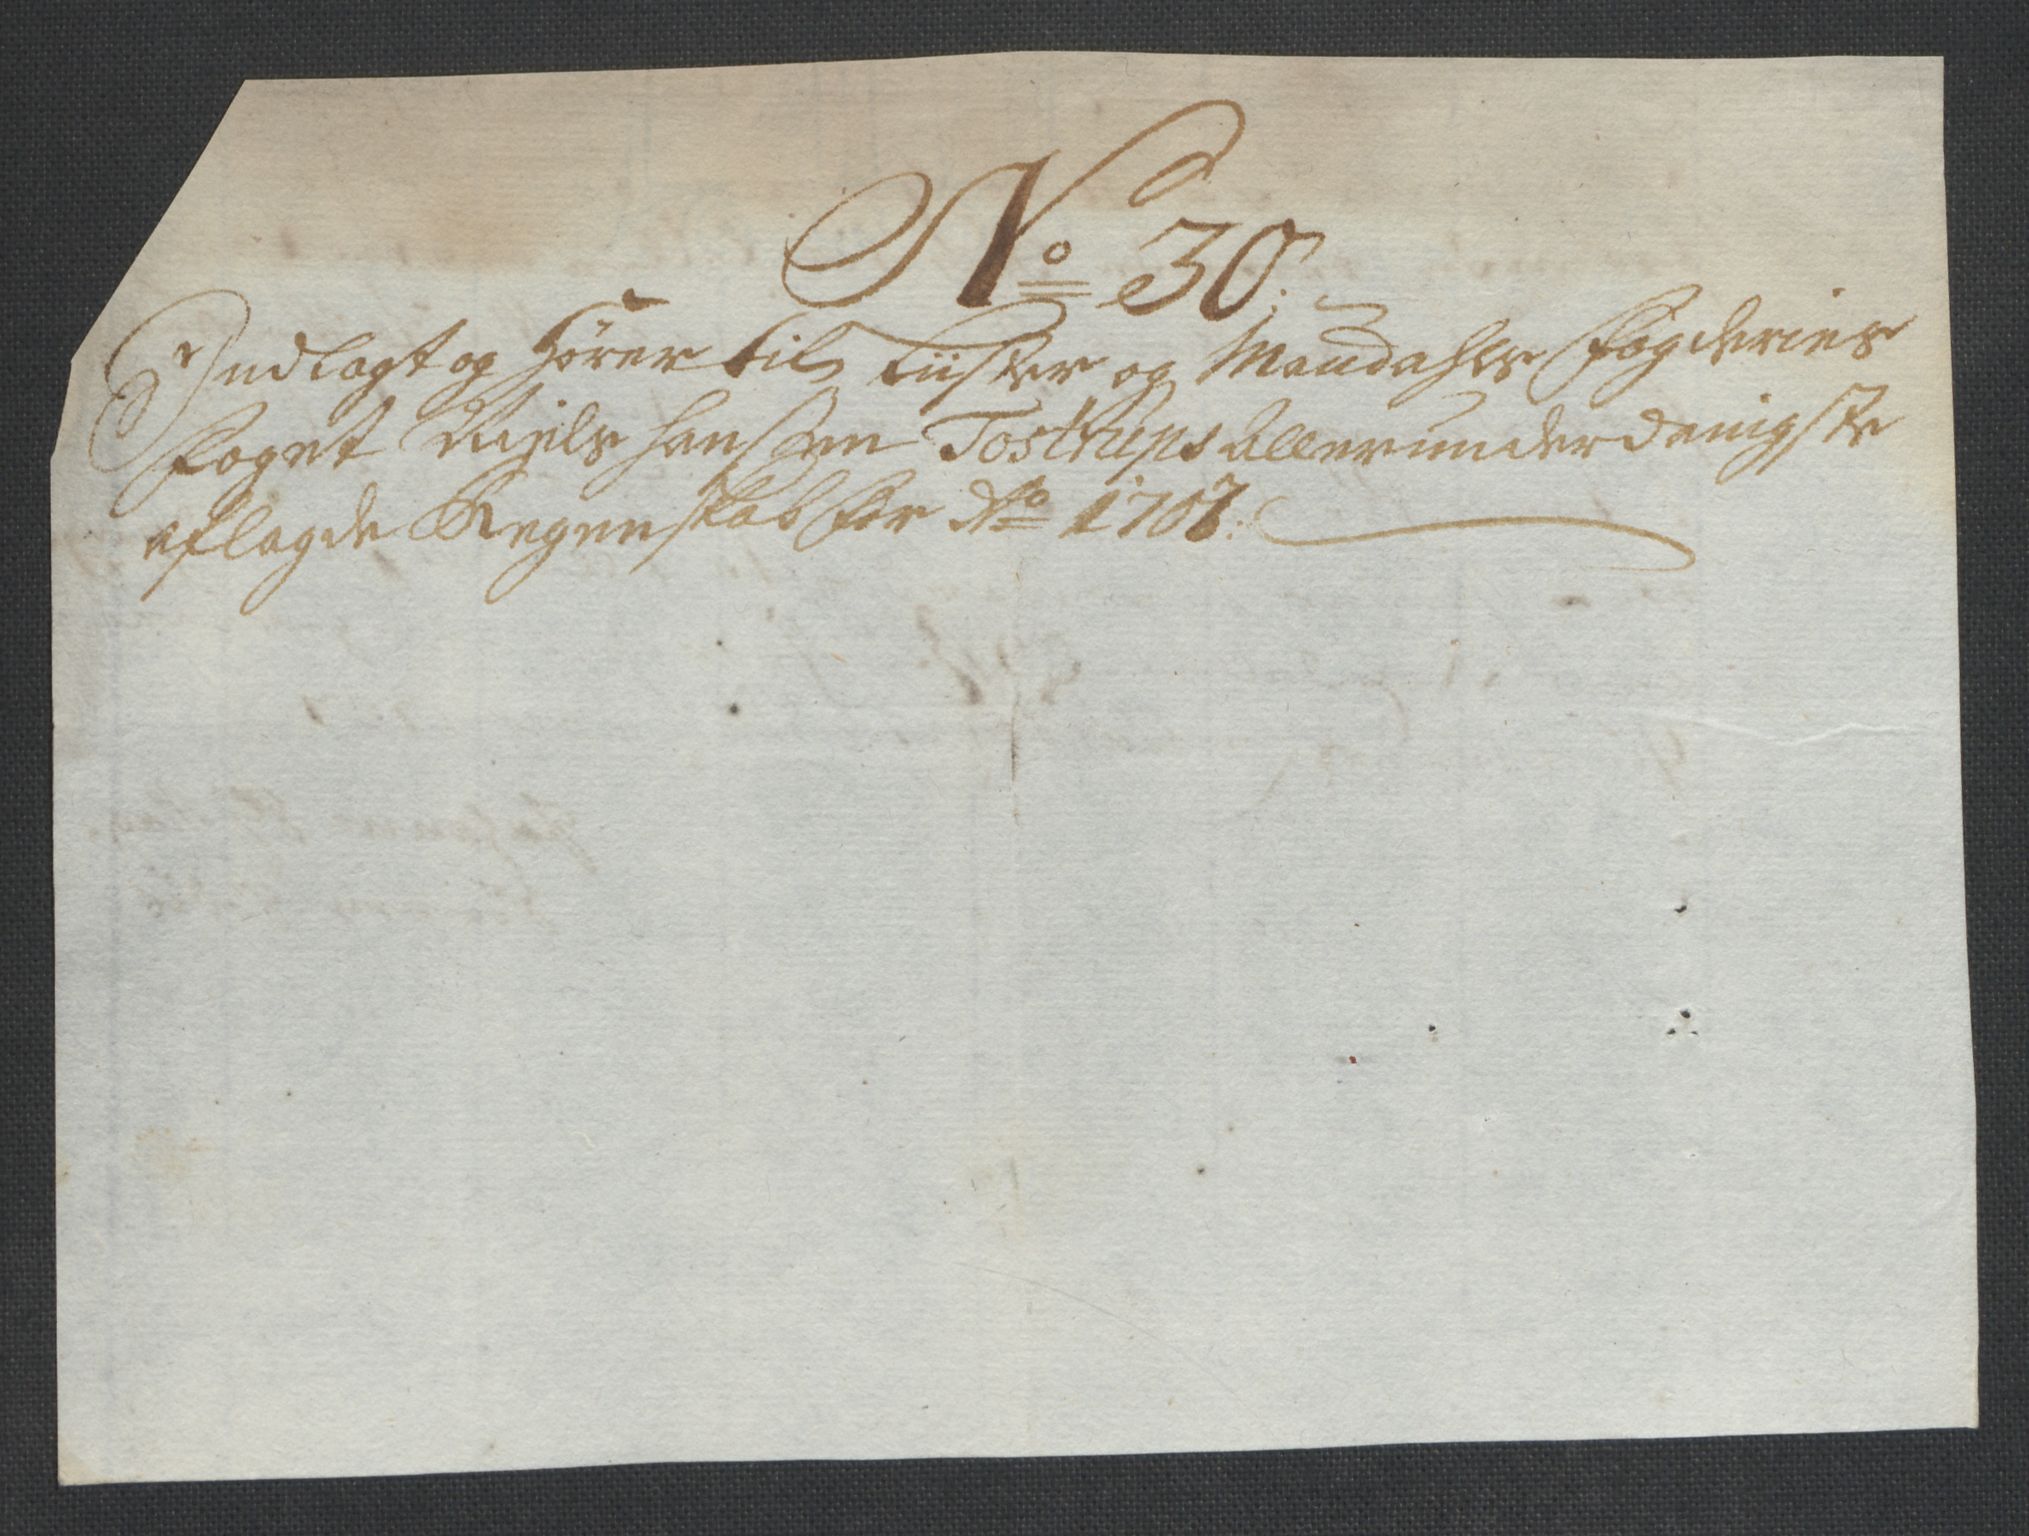 No 30.
Indlagt og hörer til Liister og Mandahls fogderies
foget Niels Hanssen Tostrups allerunderdanigste
aflagde Regenskab for Ao 1707.